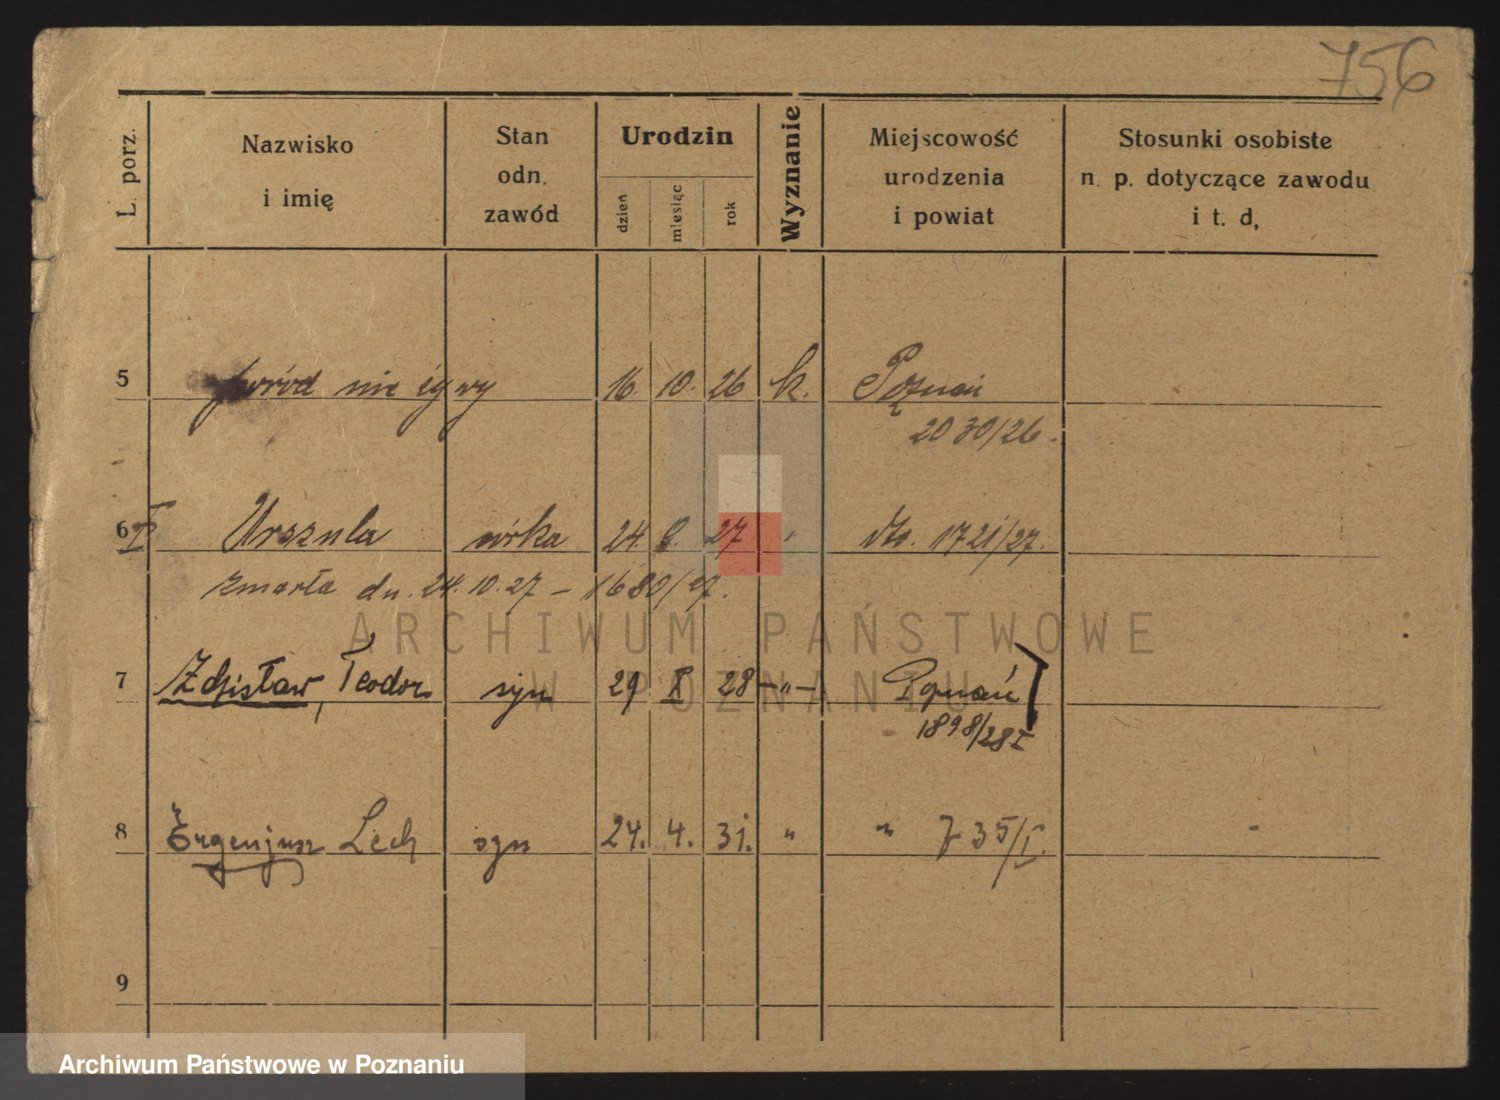 756
L. porz. Nazwisko i imię Stan odn. zawód Urodzin dzień miesiąc rok Wyznanie Miejscowość urodzenia i powiat Stosunki osobiste n. p. dotyczące zawodu i t. d,
5 poród nie żywy 16. 10. 26 k. Poznań
2030/26.
6 Urszula córka 24. 9. 27 " dto. 1721/27.
zmarła dn. 24.10.27 – 1680/27.
ARCHIWUM PAŃSTWOWE
7 Zdzisław, Teodor syn 29 X 28 –"– Poznań
W POZNANIU
1898/28 I
8 Eugenjusz Lech syn 24. 4. 31. " " 735/I.
9
Archiwum Państwowe w Poznaniu